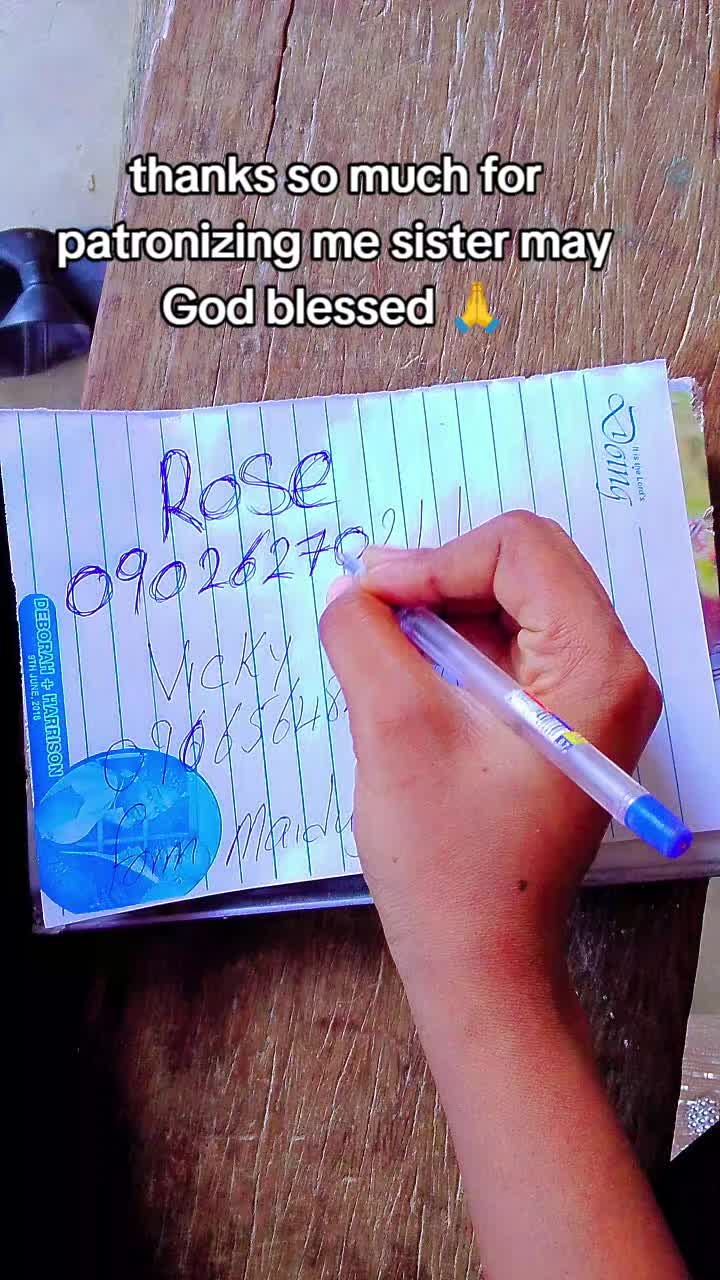 thanks so much for
patronizing me sister may
God blessed 🙏
It is the Lord's
Doing
Rose
0902627021
Vicky
DEBORAH + HARRISON
9TH JUNE, 2018
form